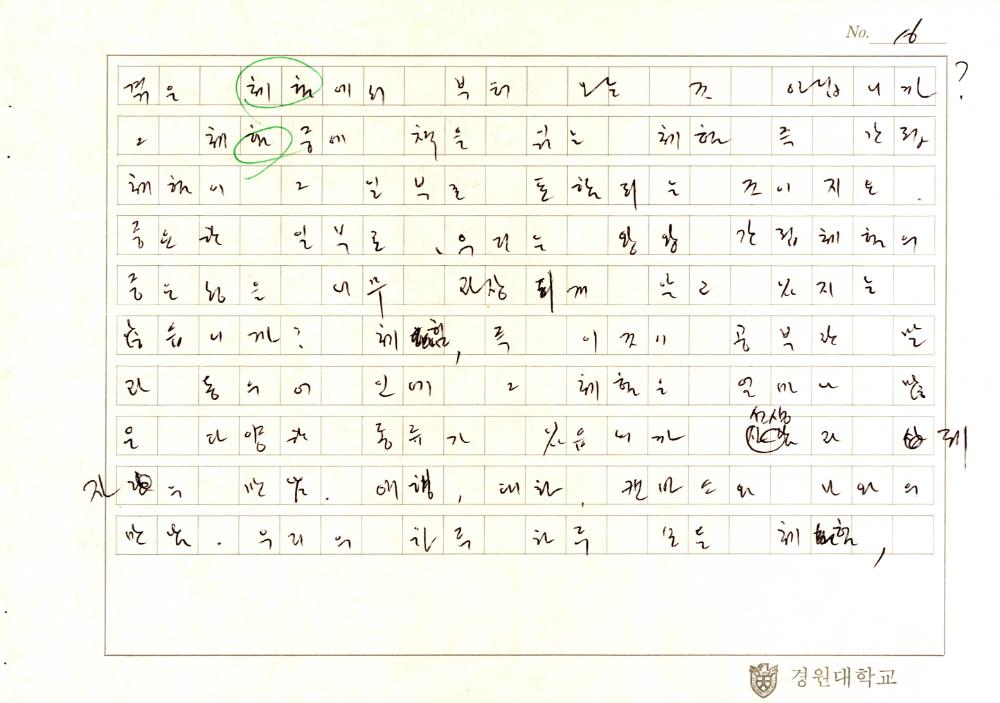 No. 16
겪은 체험에서 부터 오는 것 아닙니까?
그 체험 중에 책을 읽는 체험 즉 간접
체험이 그 일부로 포함되는 것이지요.
중요한 일부로, 우리는 왕왕 간접체험의
중요함을 너무 과장되게 알고 있지는
않습니까? 체험, 즉 이것이 공부란 말
과 동의어 인데 그 체험은 얼마나 많
은 다양한 종류가 있습니까 선생과 제
자의 만남. 여행, 대화, 캠퍼스와 나와의
만남. 우리의 하루 하루 모든 체험,
경원대학교